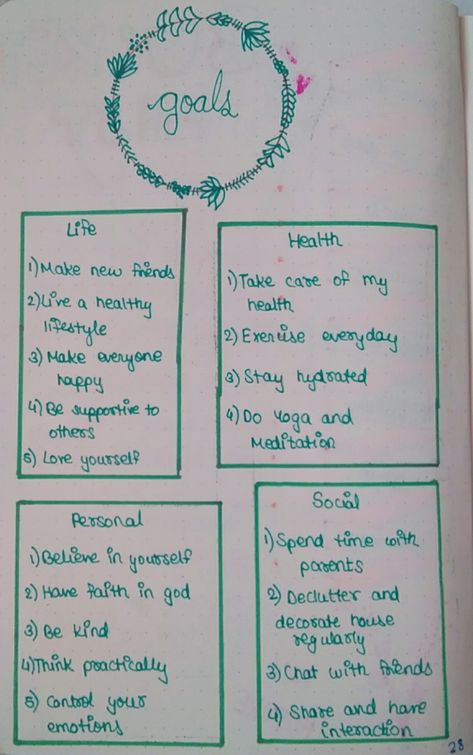 goals
Life
1) Make new friends
2) Live a healthy
lifestyle
3) Make everyone
happy
4) Be supportive to
others
5) Love yourself
Health
1) Take care of my
health
2) Exercise everyday
3) Stay hydrated
4) Do yoga and
Meditation
Personal
1) Believe in yourself
2) Have faith in god
3) Be kind
4) Think practically
5) Control your
emotions
Social
1) Spend time with
parents
2) Declutter and
decorate house
regularly
3) Chat with friends
4) Share and have
interaction